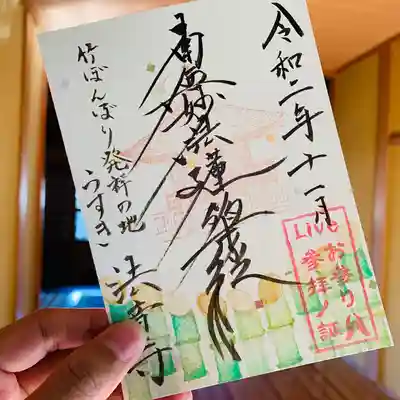 令和二年十一月
LIVE
お参り
参拝ノ証
南無妙法蓮華経
竹ぼんぼり発祥の地
うすき
法音寺